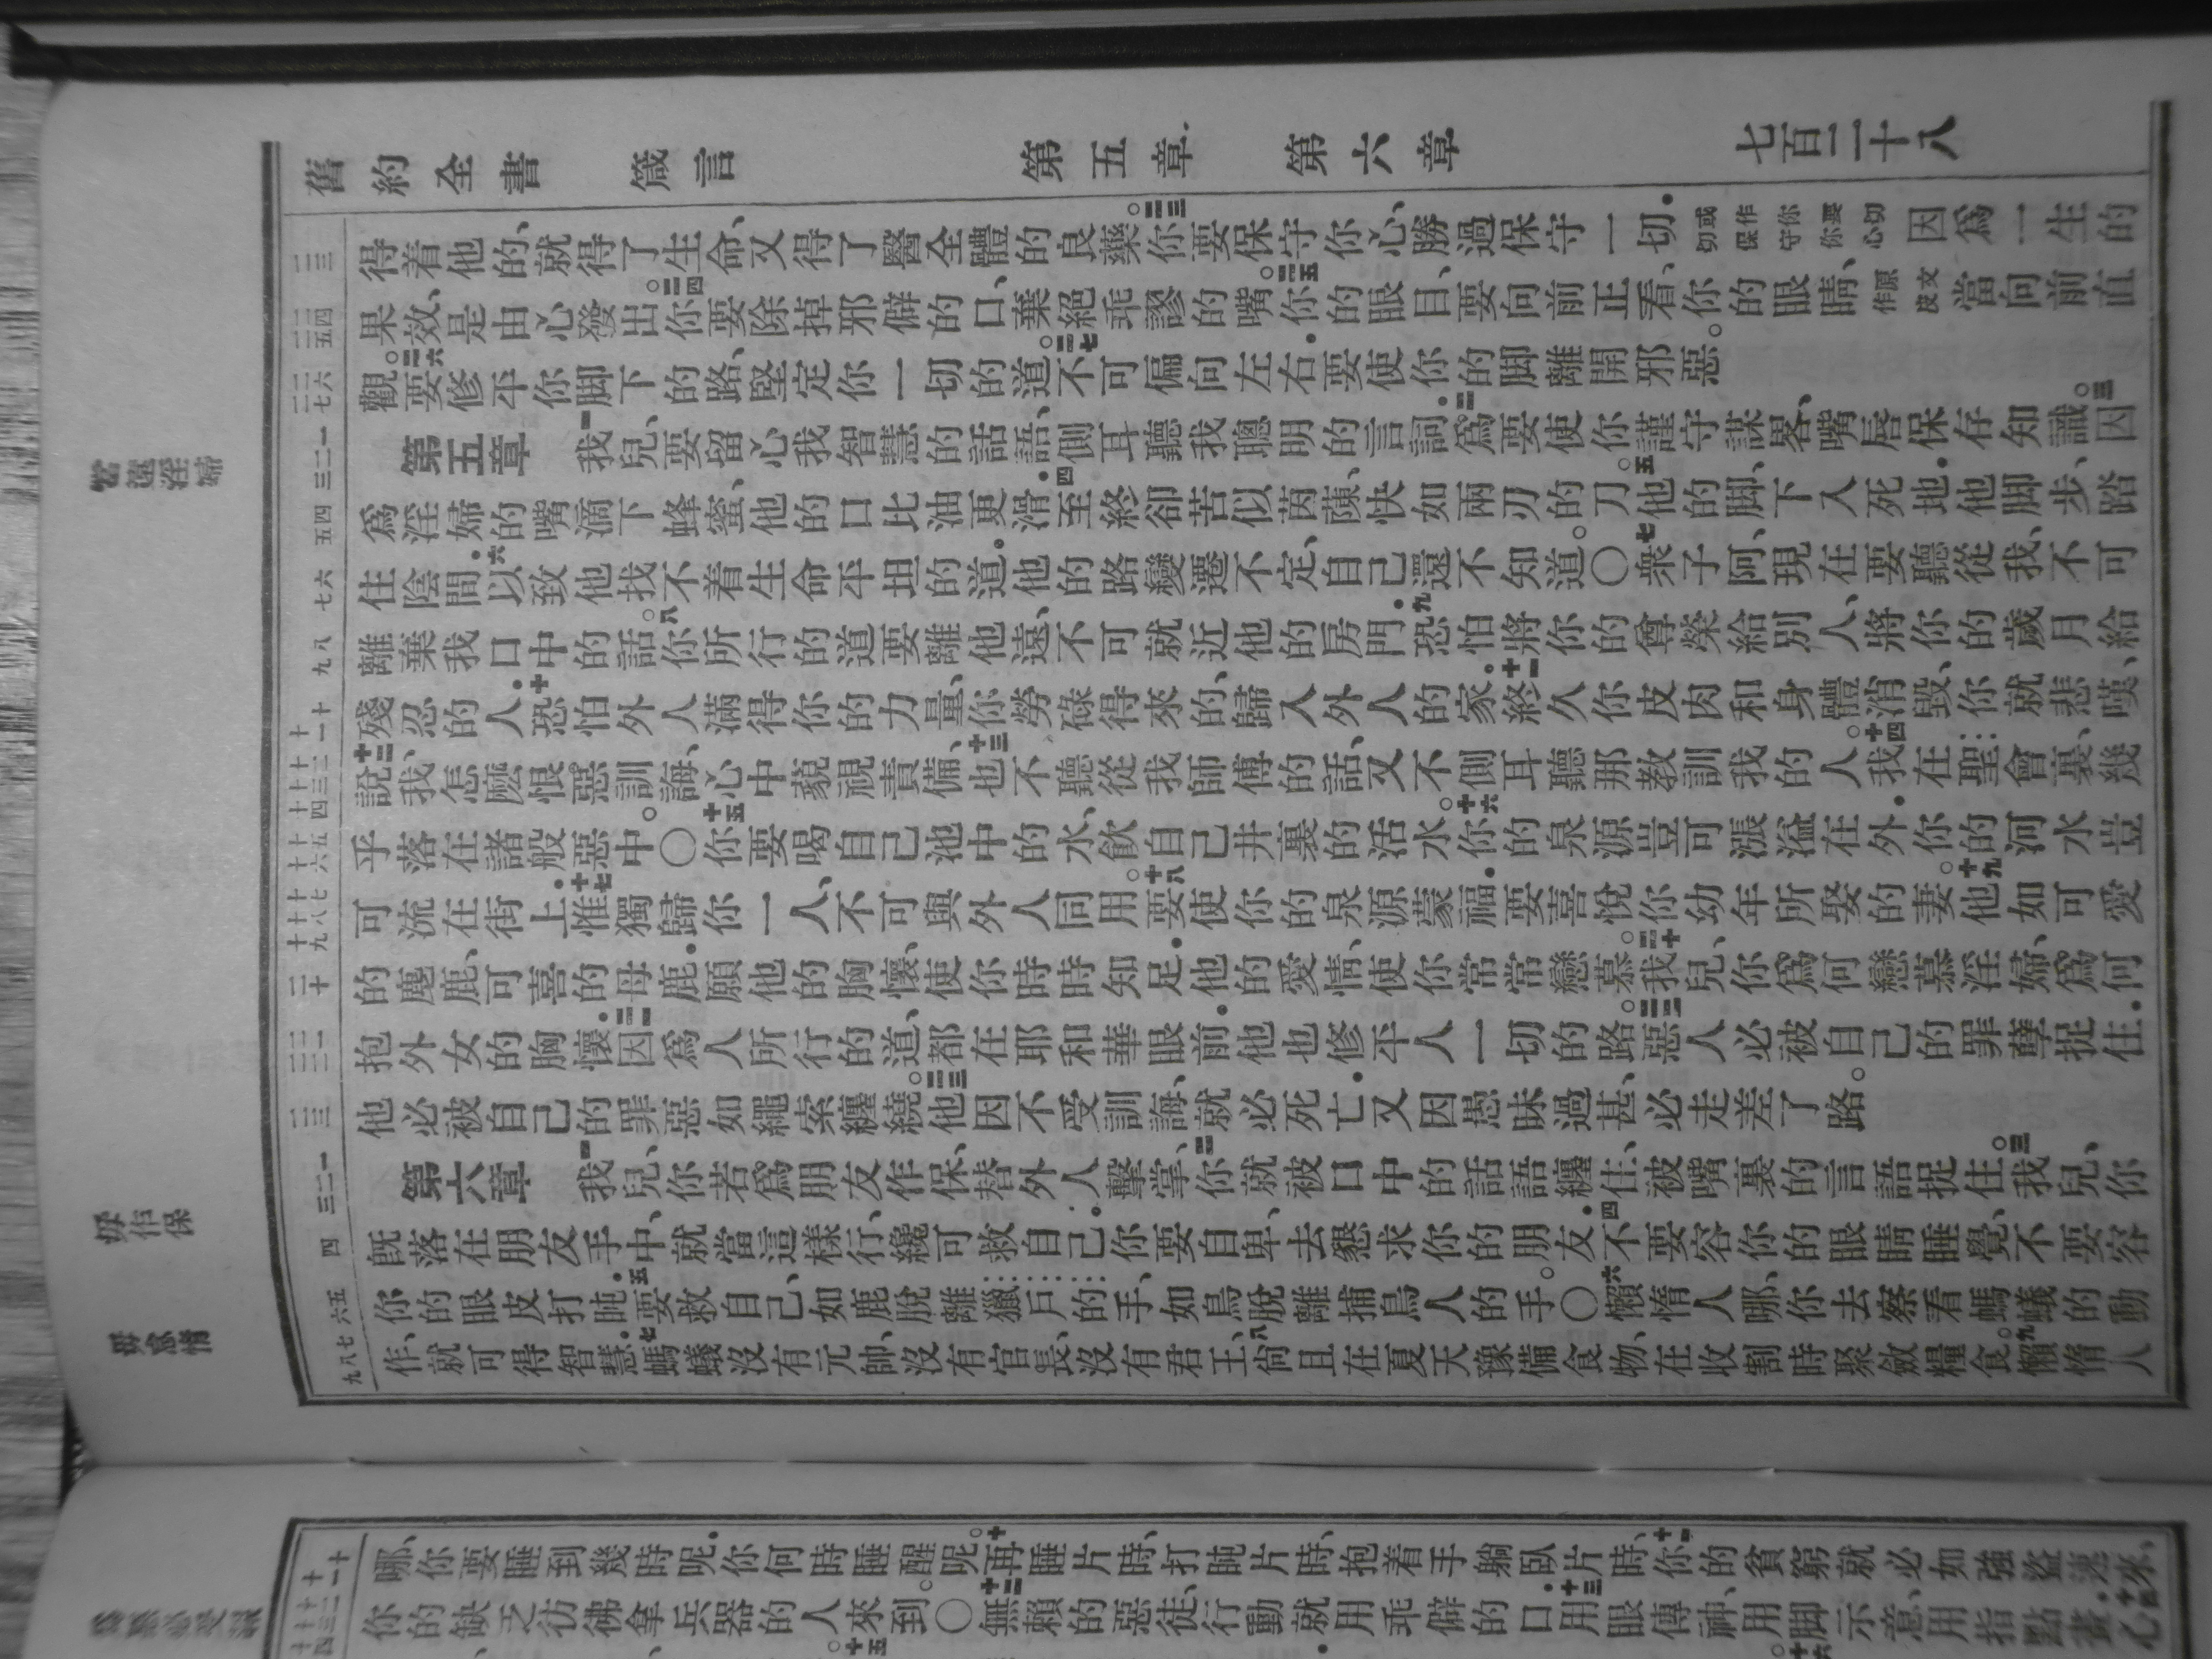 舊約全書 箴言 第五章 第六章 七百二十八
得着他的、就得了生命、又得了醫全體的良藥。二三你要保守你心、勝過保守一切．或作你要切切保守你心因爲一生的
果效、是由心發出。二四你要除掉邪僻的口、棄絕乖謬的嘴。二五你的眼目、要向前正看、你的眼睛、原文作皮當向前直
觀。二六要修平你脚下的路、堅定你一切的道。二七不可偏向左右．要使你的脚離開邪惡。
第五章 一我兒、要留心我智慧的話語、側耳聽我聰明的言詞．二爲要使你謹守謀畧、嘴唇保存知識。三因
爲淫婦的嘴滴下蜂蜜、他的口比油更滑．四至終卻苦似茵蔯、快如兩刃的刀。五他的脚、下入死地．他脚步、踏
住陰間．六以致他找不着生命平坦的道．他的路變遷不定、自己還不知道。〇七衆子阿、現在要聽從我、不可
離棄我口中的話。八你所行的道要離他遠、不可就近他的房門．九恐怕將你的尊榮給別人、將你的歲月給
殘忍的人．十恐怕外人滿得你的力量、你勞碌得來的、歸入外人的家．十一終久你皮肉和身體消毀、你就悲嘆、
十二說、我怎麽恨惡訓誨、心中藐視責備、十三也不聽從我師傅的話、又不側耳聽那教訓我的人。十四我在聖會裏、幾
乎落在諸般惡中。〇十五你要喝自己池中的水、飲自己井裏的活水。十六你的泉源豈可漲溢在外．你的河水豈
可流在街上．十七惟獨歸你一人、不可與外人同用。十八要使你的泉源蒙福．要喜悅你幼年所娶的妻。十九他如可愛
的麀鹿、可喜的母鹿．願他的胸懷、使你時時知足．他的愛情、使你常常戀慕。二十我兒、你爲何戀慕淫婦、爲何
抱外女的胸懷．二一因爲人所行的道、都在耶和華眼前．他也修平人一切的路。二二惡人必被自己的罪孽捉住．
他必被自己的罪惡如繩索纏繞。二三他因不受訓誨、就必死亡．又因愚昧過甚、必走差了路。
第六章 一我兒、你若爲朋友作保、替外人擊掌、二你就被口中的話語纏住、被嘴裏的言語捉住。三我兒、你
旣落在朋友手中、就當這樣行、纔可救自己．你要自卑、去懇求你的朋友．四不要容你的眼睛睡覺、不要容
你的眼皮打盹．五要救自己、如鹿脫離獵戶的手、如鳥脫離捕鳥人的手。〇六懶惰人哪、你去察看螞蟻的動
作、就可得智慧．七螞蟻沒有元帥、沒有官長、沒有君王、八尙且在夏天豫備食物、在收割時聚斂糧食。九懶惰人
當遠淫婦
毋作保
毋怠惰
哪、你要睡到幾時呢．你何時睡醒呢。十再睡片時、打盹片時、抱着手躺臥片時、十一你的貧窮就必如強盜速來、
你的缺乏彷彿拿兵器的人來到。〇十二無賴的惡徒、行動就用乖僻的口．十三用眼傳神、用脚示意、用指點畫．十四心